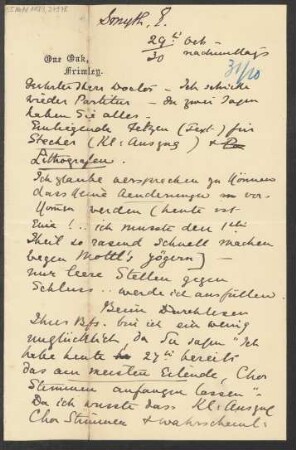 Smyth, E.
29ten Oct.
30 nachmittags
One Oak,
Frimley.
31/10
Geehrter Herr Doctor – Ich schicke
wieder Partitur – In zwei Tagen
haben Sie alles –
Einliegende Fetzen (Text) für
Stecher (Kl: Auszug) +
Lithografen.
Ich glaube versprechen zu können
dass keine Aenderungen vor-
kommen werden (heute ist
Eine!.. ich musste den 1ten
Theil so rasend schnell machen
wegen Mottl's Zögern) –
nur leere Stellen gegen
Schluss.. werde ich ausfüllen.
Beim Durchlesen
Ihres Bfs. bin ich ein wenig
unglücklich, da Sie sagen "Ich
habe heute 27ten bereits
das am meisten Eilende, Chor
Stimmen anfangen lassen"
Da ich wusste dass Kl: Auszug
Chor Stimmen + wahrscheinl: